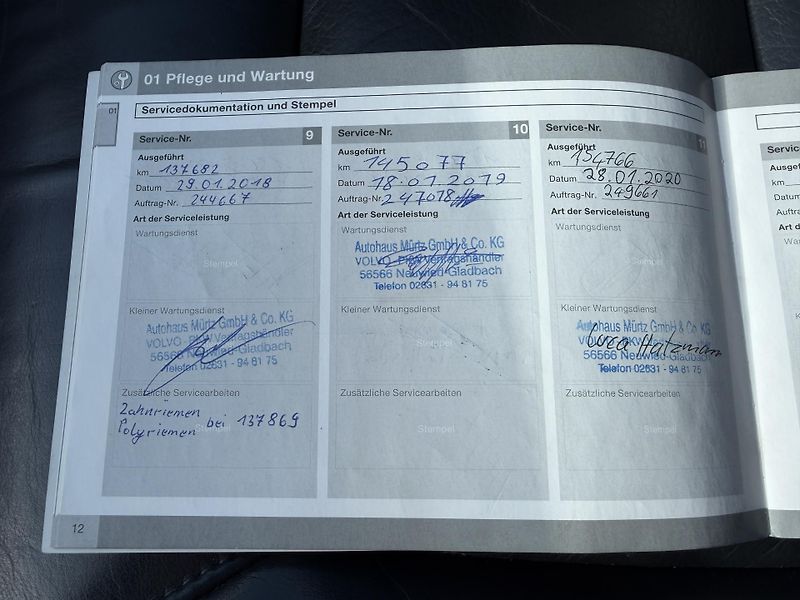 01 Pflege und Wartung
01
Servicedokumentation und Stempel
Service-Nr. 9
Ausgeführt
km 137682
Datum 29.01.2018
Auftrag-Nr. 244667
Art der Serviceleistung
Wartungsdienst
Stempel
Kleiner Wartungsdienst
Autohaus Mürtz GmbH & Co. KG
VOLVO - PKW Vertragshändler
56566 Neuwied-Gladbach
Telefon 02631 - 94 81 75
Zusätzliche Servicearbeiten
Zahnriemen
Polyriemen bei 137869
Stempel
Service-Nr. 10
Ausgeführt
km 145077
Datum 18.01.2019
Auftrag-Nr. 247018
Art der Serviceleistung
Wartungsdienst
Autohaus Mürtz GmbH & Co. KG
VOLVO - PKW Vertragshändler
56566 Neuwied-Gladbach
Telefon 02631 - 94 81 75
Kleiner Wartungsdienst
Stempel
Zusätzliche Servicearbeiten
Stempel
Service-Nr. 11
Ausgeführt
km 154766
Datum 28.01.2020
Auftrag-Nr. 249661
Art der Serviceleistung
Wartungsdienst
Stempel
Kleiner Wartungsdienst
Autohaus Mürtz GmbH & Co. KG
VOLVO - PKW Vertragshändler
56566 Neuwied-Gladbach
Telefon 02631 - 94 81 75
Zusätzliche Servicearbeiten
Stempel
12
Servic
km
Datum
Auftra
Art d